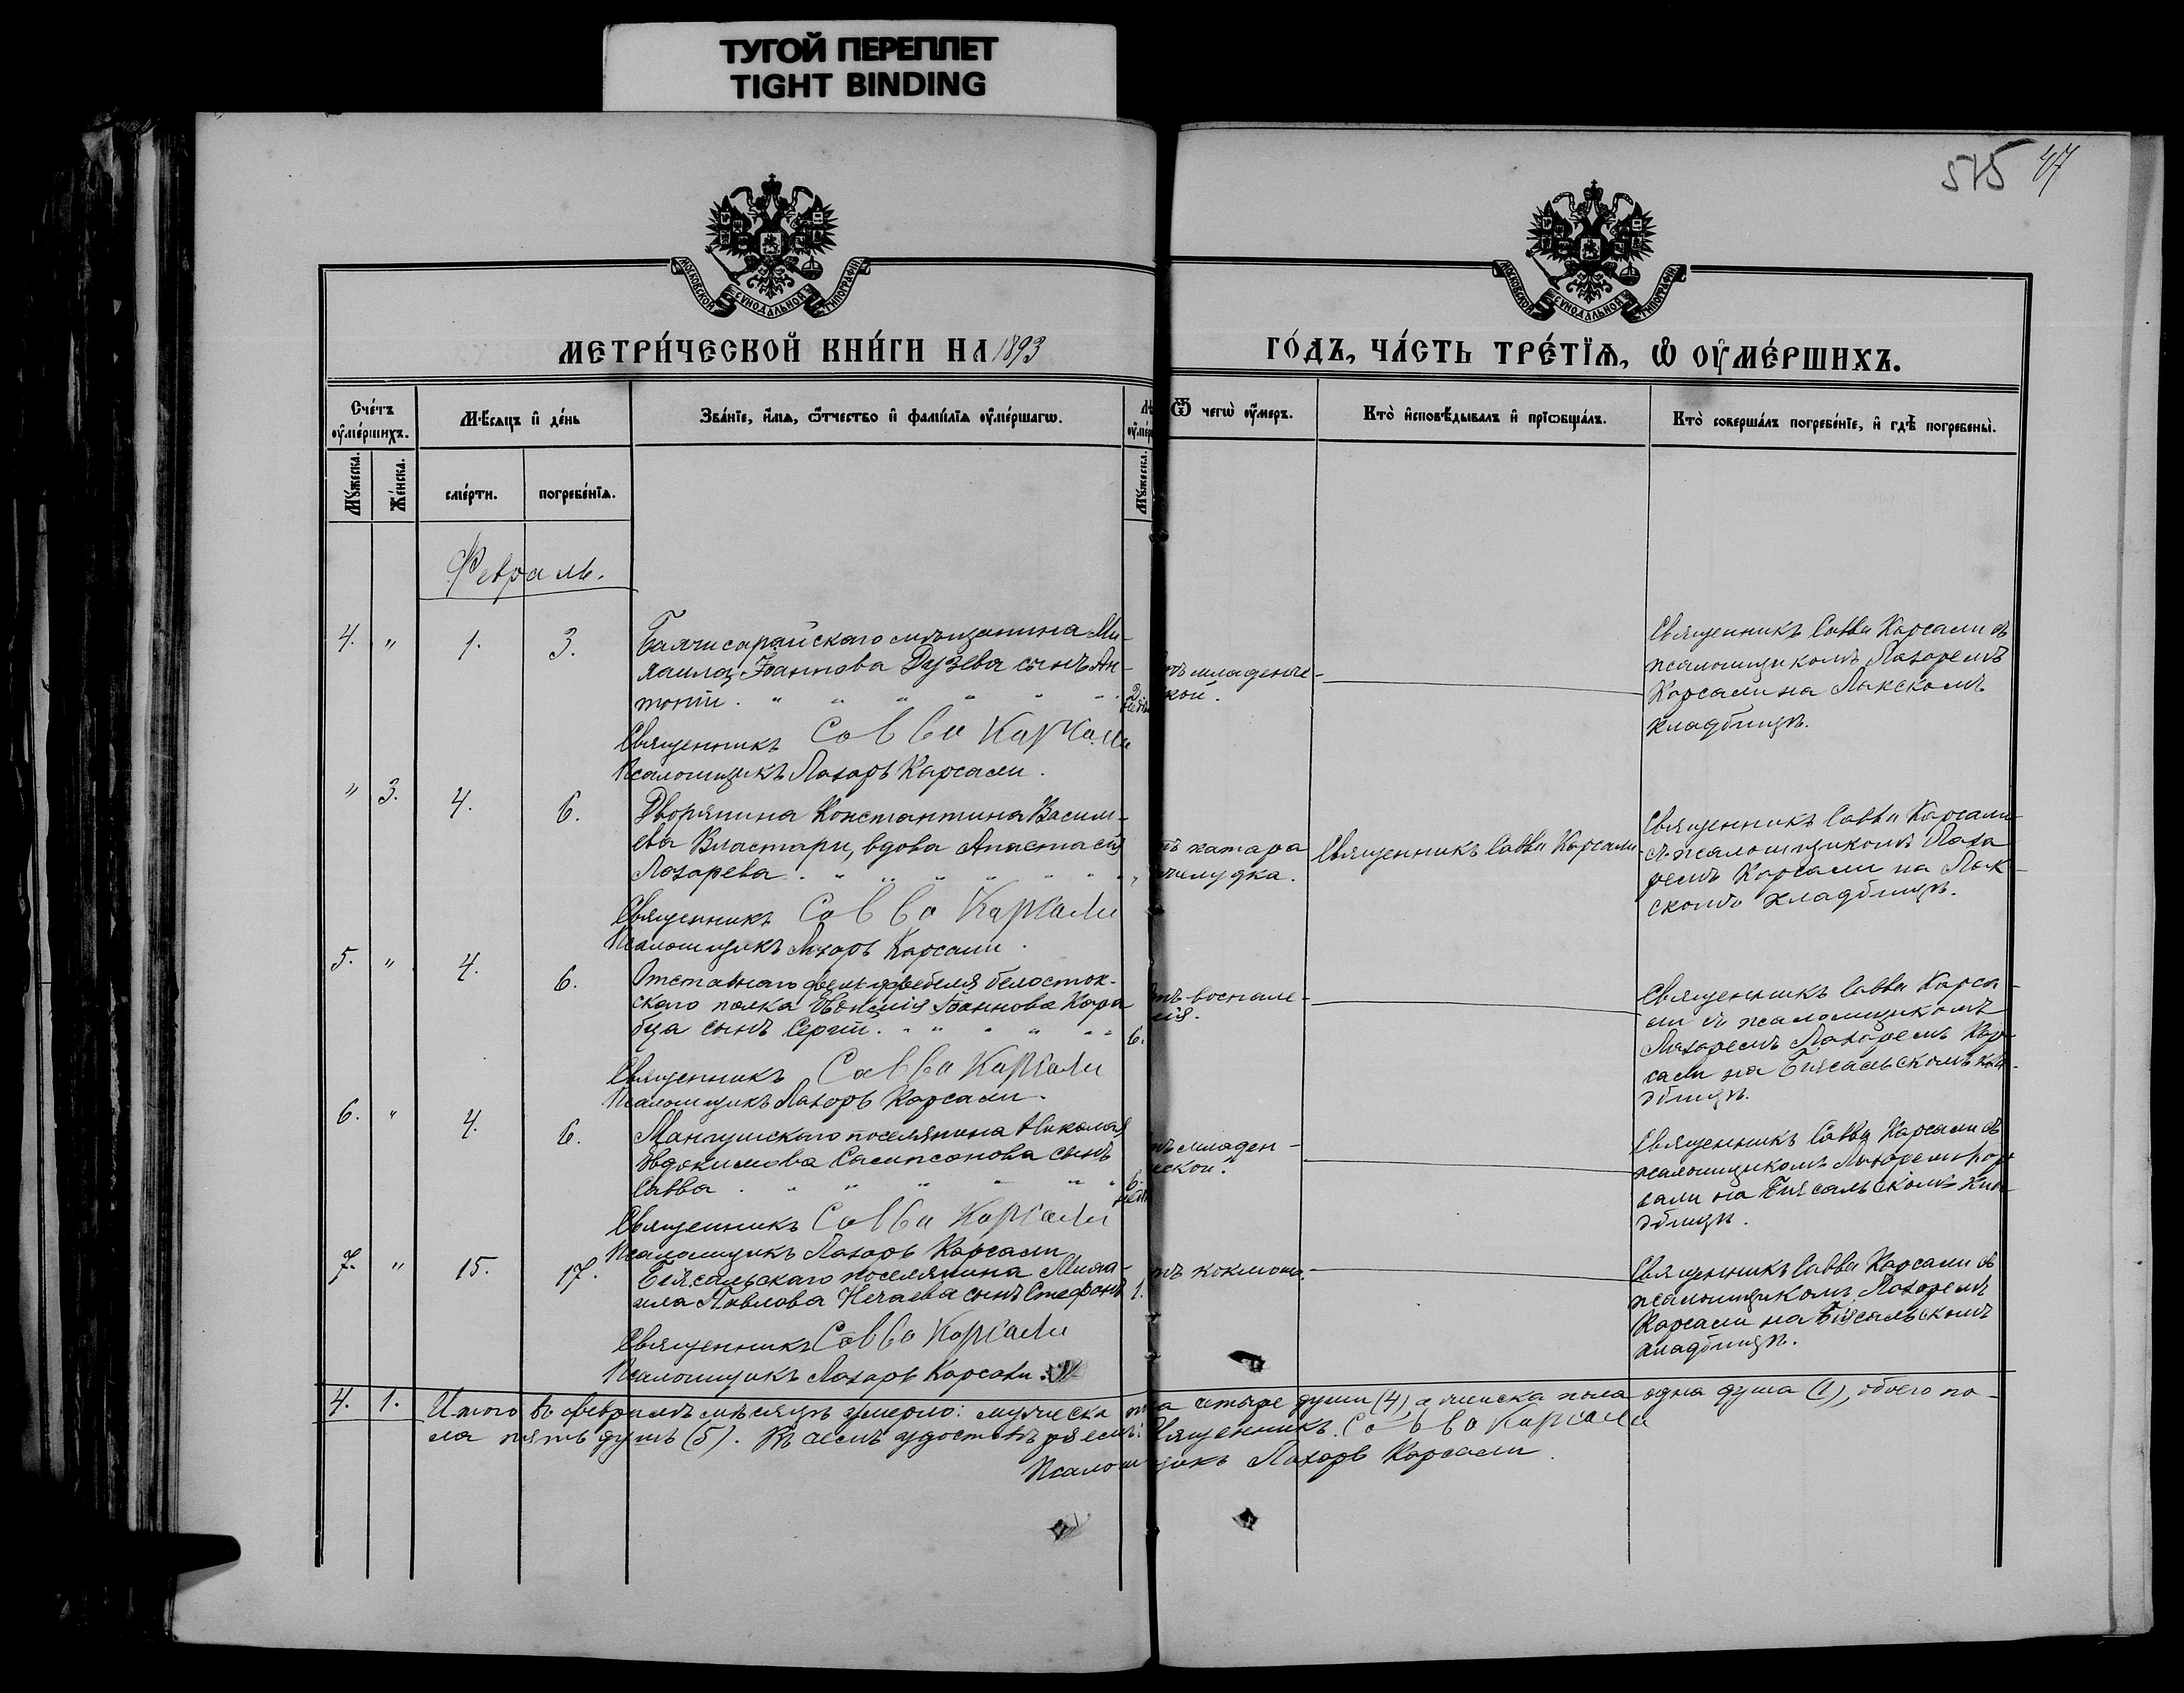 ТУГОЙ ПЕРЕПЛЕТ
TIGHT BINDING
515 47
МОСКОВСКОЙ СѴНОДАЛЬНОЙ ТИПОГРАФІИ
МОСКОВСКОЙ СѴНОДАЛЬНОЙ ТИПОГРАФІИ
МЕТРИ́ЧЕСКОЙ КНИ́ГИ НА 1893
ГО́ДЪ, ЧА́СТЬ ТРЕ́ТЇѦ, Ѡ҆ ОУ҆МЕ́РШИХЪ.
Сче́тъ оу҆ме́ршихъ.
Мꙋ́жеска.
Же́нска.
Мѣ́сѧцъ и҆ де́нь
сме́рти.
погребе́нїѧ.
Зва́нїе, и҆́мѧ, ѻ҆́тчество и҆ фами́лїѧ оу҆ме́ршагѡ.
Мꙋ́жеска.
Ѿ чегѡ̀ оу҆́меръ.
Кто̀ и҆сповѣ́дывалъ и҆ прїѡбща́лъ.
Кто̀ соверша́лъ погребе́нїе, и҆ гдѣ̀ погребены̀.
Февраль.
4. " 1. 3.
Бахчисарайскаго мѣщанина Ми-
хаила Іоаннова Дузева сынъ Ан-
тоній. " " " " " " 2.
Священникъ Савва Карсали
Псаломщикъ Лазарь Карсали.
ъ младенче-
ской.
Священникъ Савва Карсали съ
псаломщикомъ Лазаремъ
Карсали на Лакскомъ
кладбищѣ.
" 3. 4. 6.
Дворянина Константина Васили-
ева Властари, вдова Анастасія
Лазарева. " " " " " "
Священникъ Савва Карсали
Псаломщикъ Лазарь Карсали.
ъ катара
желудка.
Священникъ Савва Карсали.
Священникъ Савва Карсали
съ псаломщикомъ Лаза-
ремъ Карсали на Лак-
скомъ кладбищѣ.
5. " 4. 6.
Отставнаго фельдфебеля Белосток-
скаго полка Іоаннова Кара
сынъ Сергій. " " " " " 6.
Священникъ Савва Карсали
Псаломщикъ Лазарь Карсали.
тъ воспале-
нія.
Священникъ Савва Карса-
ли съ псаломщикомъ
Лазаремъ Кар-
сали на Біясальскомъ кла-
дбищѣ.
6. " 4. 6.
Мангушскаго поселянина Николая
Евдокимова Сампсонова сынъ
Савва. " " " " " " 6.
Священникъ Савва Карсали
Псаломщикъ Лазарь Карсали
ъ младен-
ской.
Священникъ Савва Карсали съ
псаломщикомъ Лазаремъ Кар-
сали на Біясальскомъ кла-
дбищѣ.
7. " 15. 17.
Біясальскаго поселянина Миха-
ила Павлова Нечаева сынъ Стефанъ 1.
Священникъ Савва Карсали
Псаломщикъ Лазарь Карсали.
тъ коклюша.
Священникъ Савва Карсали съ
псаломщикомъ Лазаремъ
Карсали на Біясальскомъ
кладбищѣ.
4. 1. Итого въ февралѣ мѣсяцѣ умерло: мужеска пола четыре души (4), а женска пола одна душа (1), обоего по-
ла пять душъ (5). Въ чемъ удостовѣряемъ: Священникъ Савва Карсали
Псаломщикъ Лазарь Карсали.